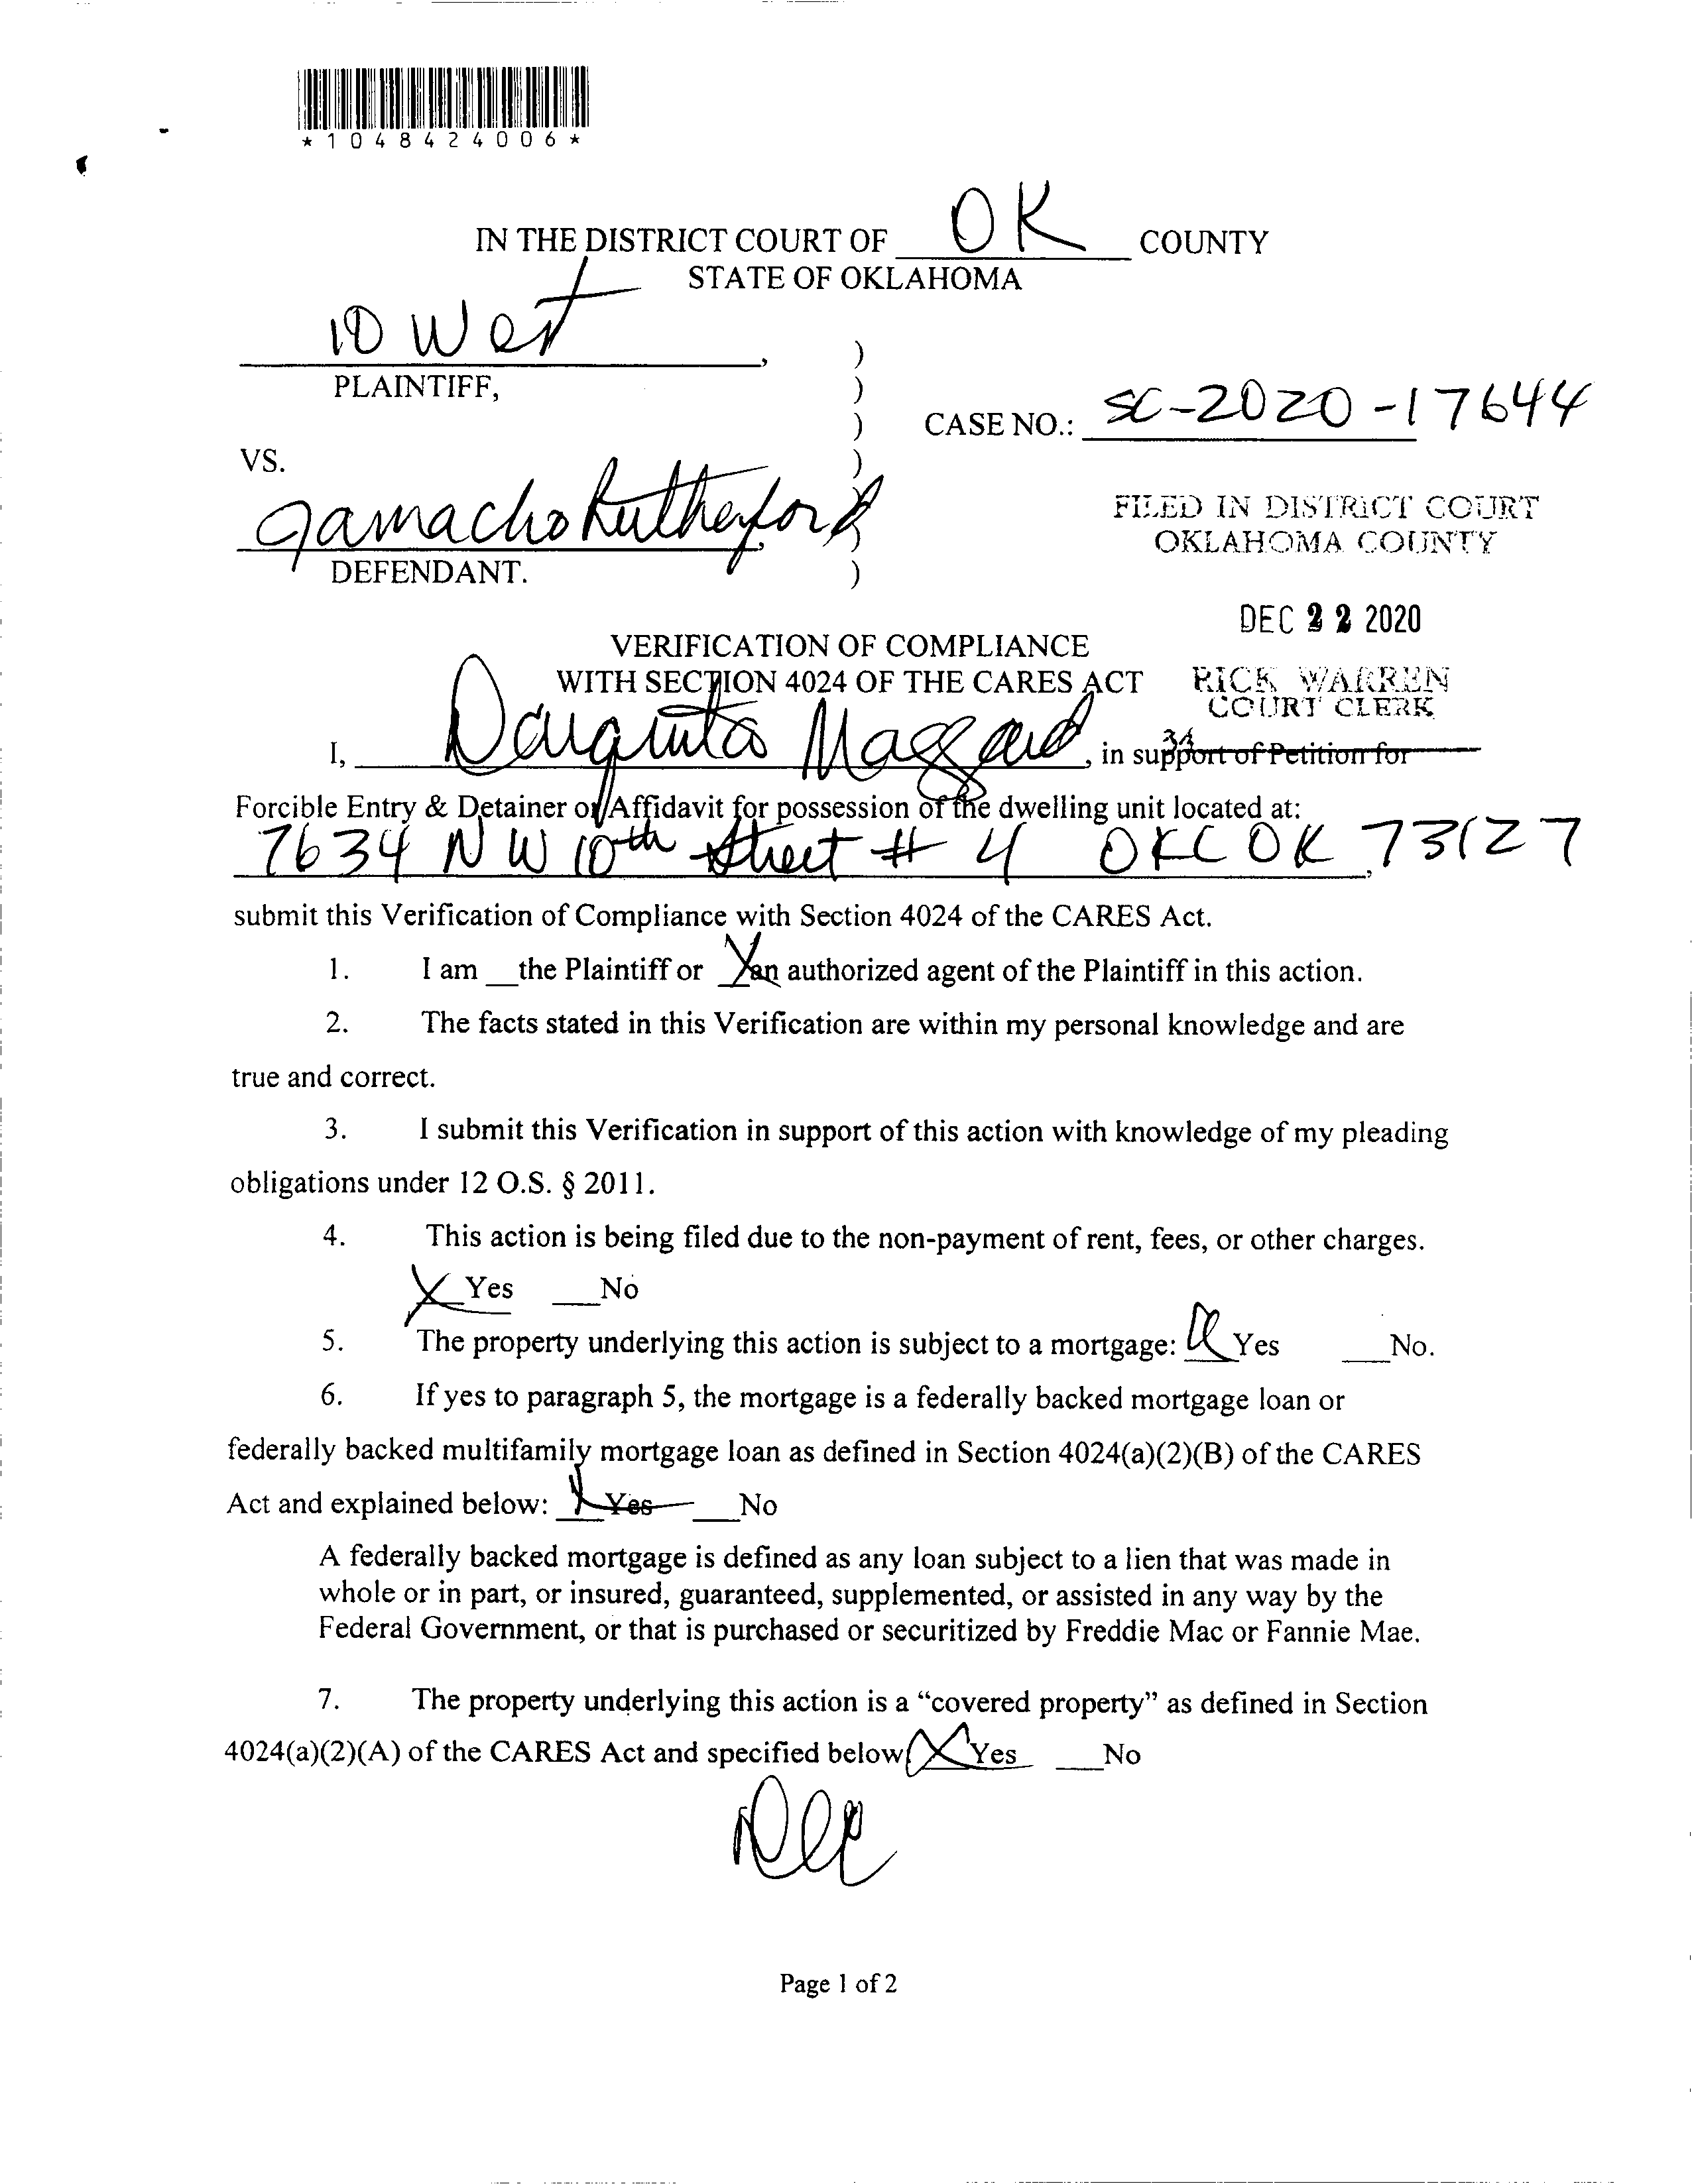 *1048424006*
IN THE DISTRICT COURT OF OK COUNTY
STATE OF OKLAHOMA
10 West,
PLAINTIFF,
CASE NO.: SC-2020-17644
VS.
Jamacho Rutherford,
DEFENDANT.
FILED IN DISTRICT COURT
OKLAHOMA COUNTY
DEC 22 2020
RICK WARREN
COURT CLERK
34
VERIFICATION OF COMPLIANCE
WITH SECTION 4024 OF THE CARES ACT
I, Maggard, in support of Petition for
Forcible Entry & Detainer or Affidavit for possession of the dwelling unit located at:
7634 NW 10th Street # 4 OKC OK 73127,
submit this Verification of Compliance with Section 4024 of the CARES Act.
1. I am __the Plaintiff or X an authorized agent of the Plaintiff in this action.
2. The facts stated in this Verification are within my personal knowledge and are
true and correct.
3. I submit this Verification in support of this action with knowledge of my pleading
obligations under 12 O.S. § 2011.
4. This action is being filed due to the non-payment of rent, fees, or other charges.
X Yes ___No
5. The property underlying this action is subject to a mortgage: Yes ___No.
6. If yes to paragraph 5, the mortgage is a federally backed mortgage loan or
federally backed multifamily mortgage loan as defined in Section 4024(a)(2)(B) of the CARES
Act and explained below: X Yes ___No
A federally backed mortgage is defined as any loan subject to a lien that was made in
whole or in part, or insured, guaranteed, supplemented, or assisted in any way by the
Federal Government, or that is purchased or securitized by Freddie Mac or Fannie Mae.
7. The property underlying this action is a “covered property” as defined in Section
4024(a)(2)(A) of the CARES Act and specified below X Yes ___No
Page 1 of 2